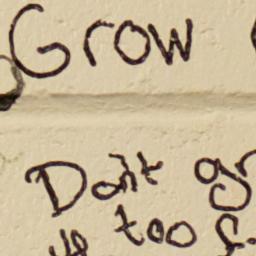 Grow
Don't gr
up too f